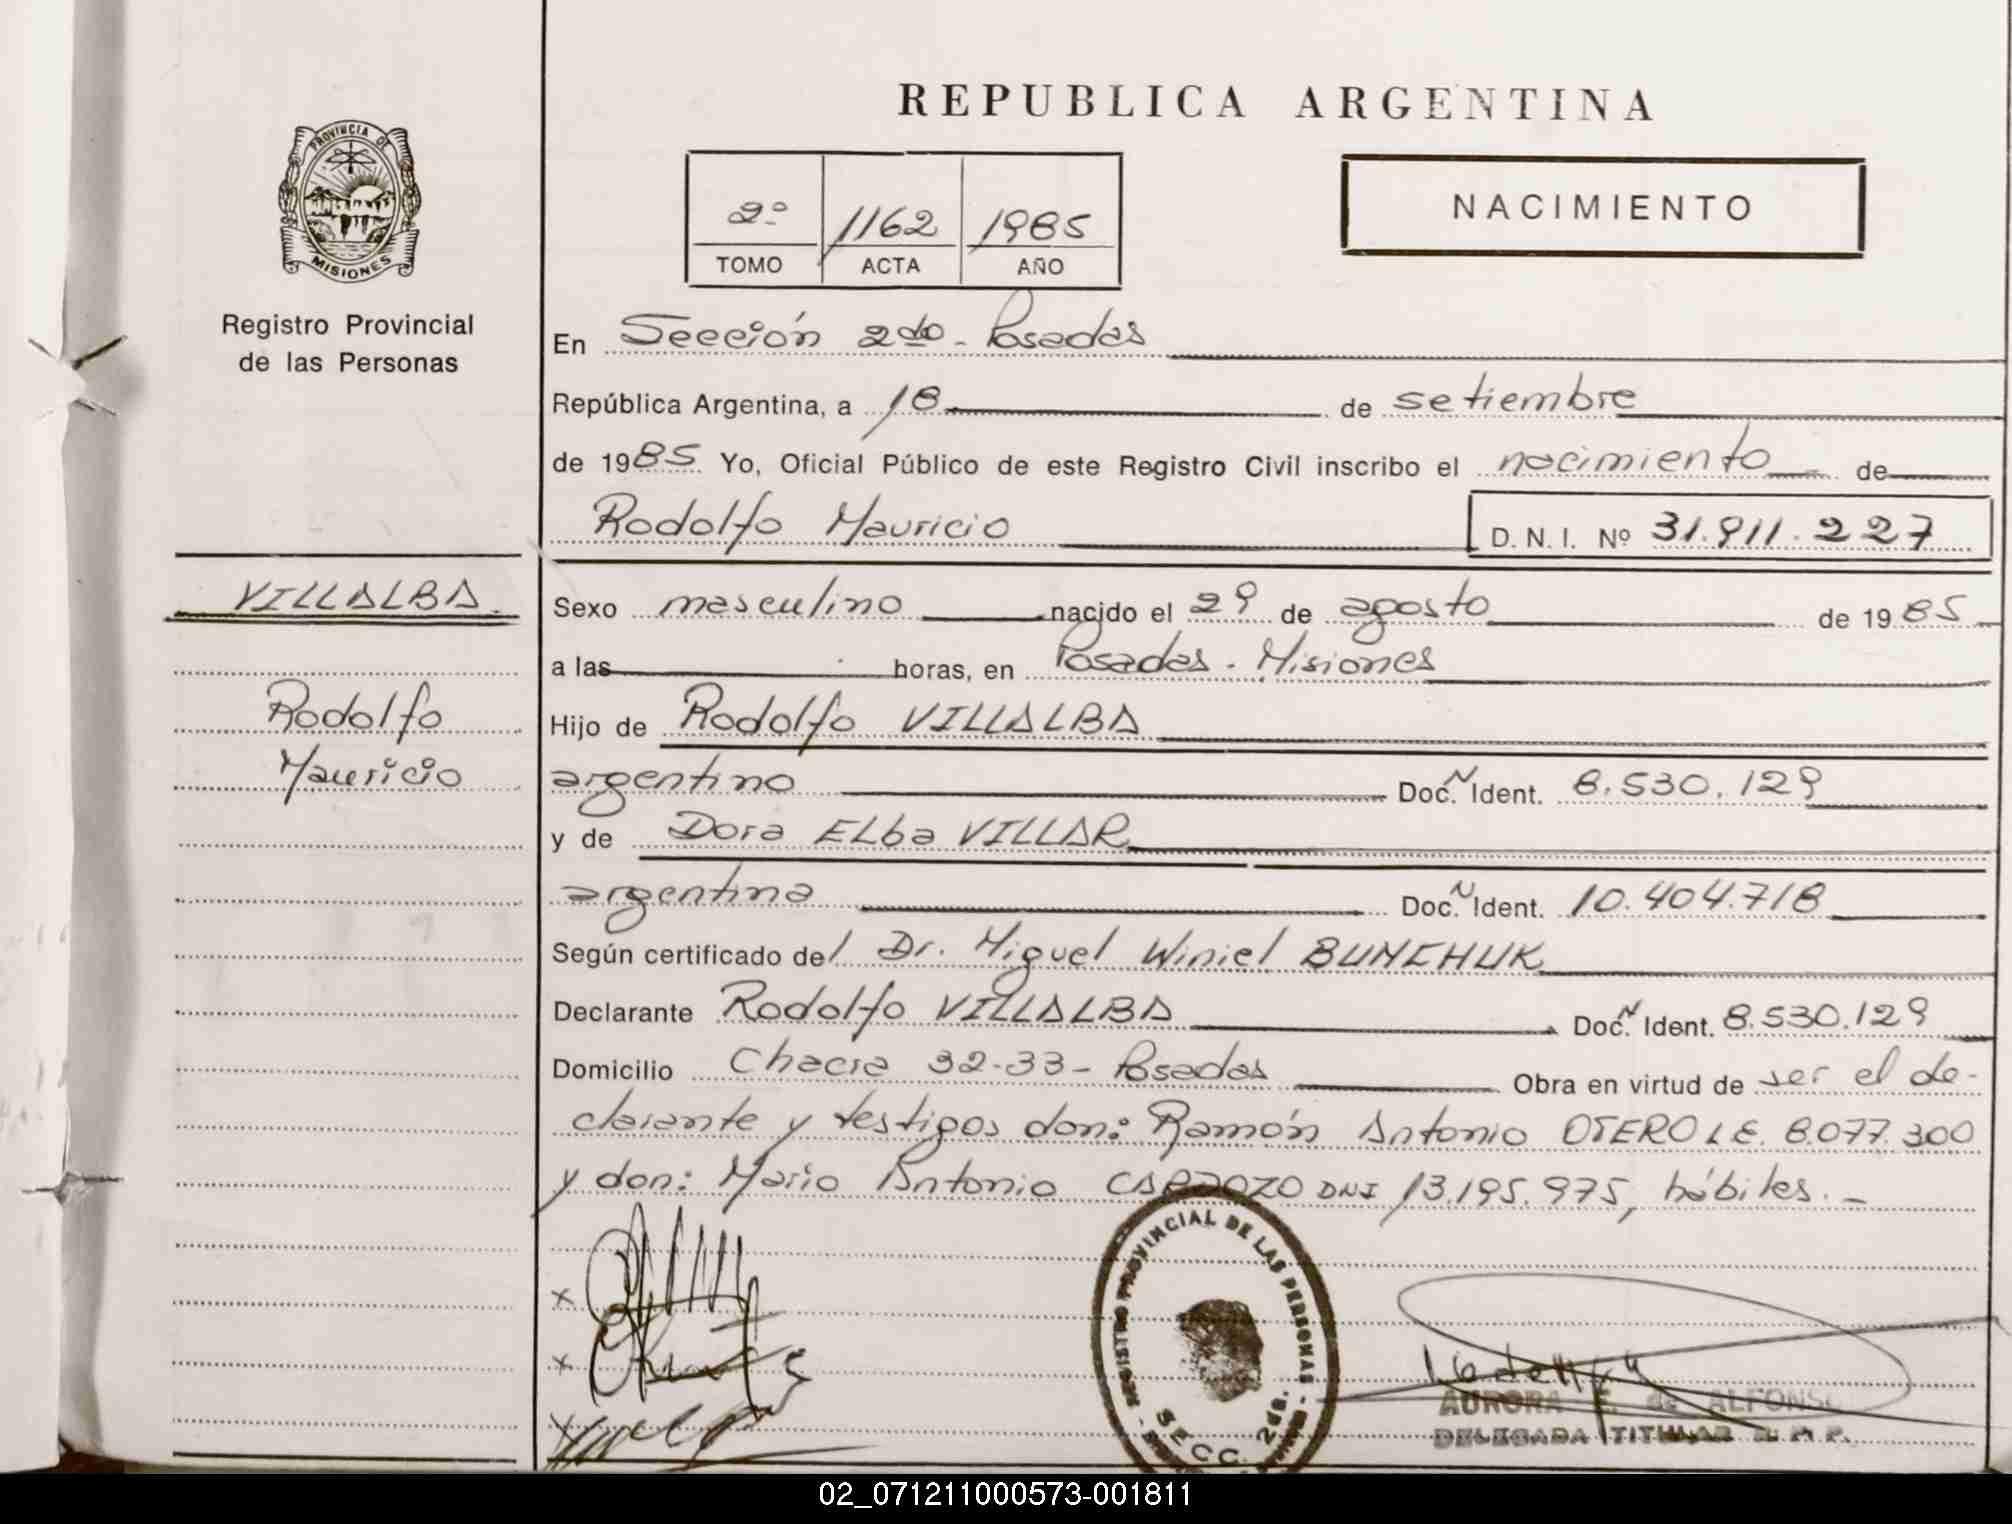 REPUBLICA ARGENTINA
PROVINCIA DE
MISIONES
Registro Provincial
de las Personas
2º 1162 1985
TOMO ACTA AÑO
NACIMIENTO
En Sección 2da - Posadas
República Argentina, a 18 de setiembre
de 1985 Yo, Oficial Público de este Registro Civil inscribo el nacimiento de
Rodolfo Mauricio D. N. I. Nº 31.911.227
VILLALBA
Rodolfo
Mauricio
Sexo masculino nacido el 29 de agosto de 1985
a las horas, en Posadas - Misiones
Hijo de Rodolfo VILLALBA
argentino Doc. N Ident. 8.530.129
y de Dora ELba VILLAR
argentina Doc. N Ident. 10.404.718
Según certificado del Dr. Miguel Winiel BUNCHUK
Declarante Rodolfo VILLALBA Doc. N Ident. 8.530.129
Domicilio Chacra 32-33 - Posadas Obra en virtud de ser el de-
clarante y testigos don: Ramón Antonio OTERO L E. 8.077.300
y don: Mario Antonio CARDOZO DNI 13.195.975, hábiles. -
x
x
x
REGISTRO PROVINCIAL DE LAS PERSONAS
SECC. 2da.
AURORA E. de ALFONSO
DELEGADA TITULAR R. P. P.
02_071211000573-001811